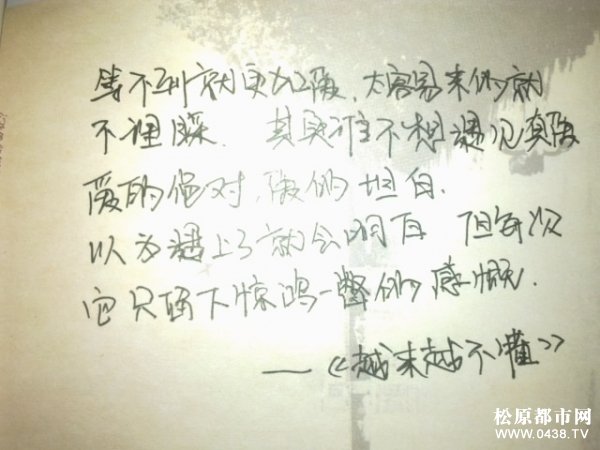 等不到就更加爱、太容易来的就
不理睬. 其实谁不想遇见真爱
爱的绝对,爱的坦白.
以为遇上了就会明白 但每次
它只留下惊鸿一瞥的感慨.
——《越来越不懂》
松原都市网
WWW.0438.TV